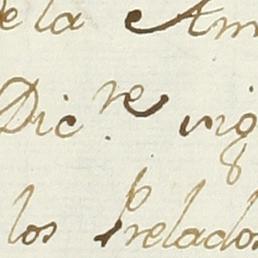 de la Am
Dic.re vig
los Prelados